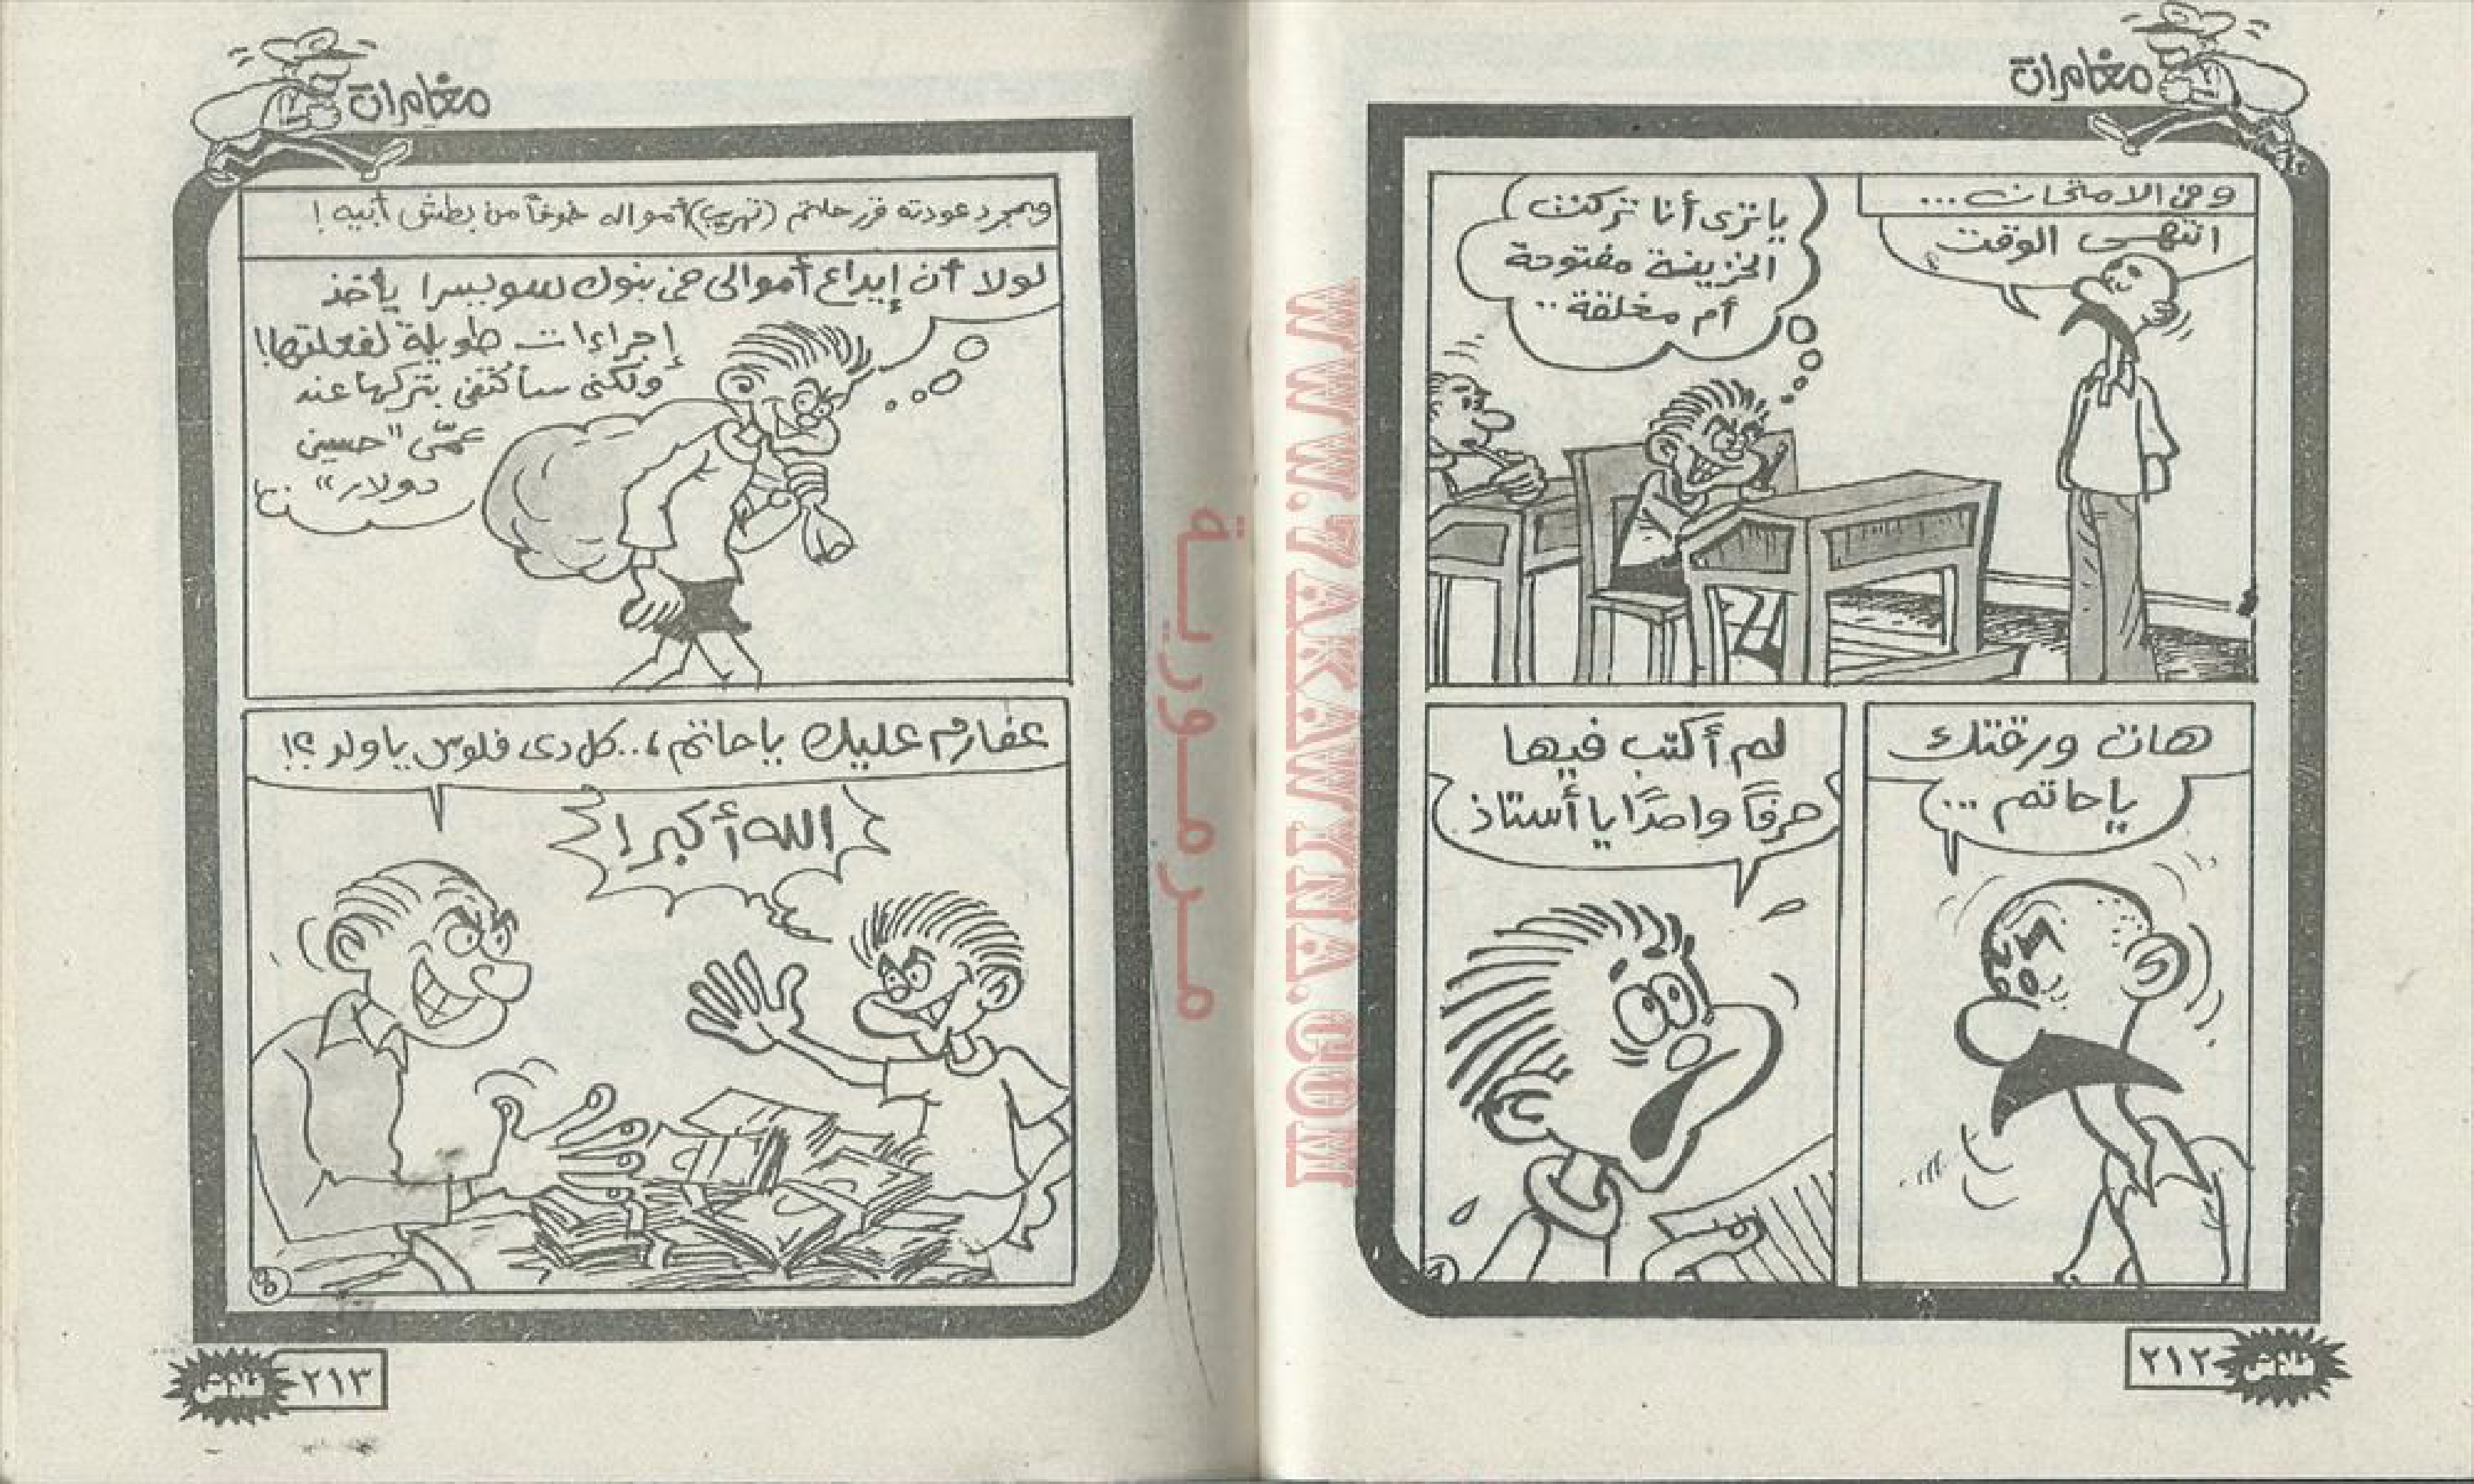 مغامرات
وفى الامتحان...
انتهى الوقت
ياترى أنا تركت
الخزينة مفتوحة
أم مغلقة..
هات ورقتك
ياحاتم...
لم أكتب فيها
حرفًا واحدًا يا أستاذ
٢١٢
فلاش
مغامرات
وبمجرد عودته قرر حاتم (تهريب) أمواله خوفاً من بطش أبيه!
لولا أن إيداع أموالى فى بنوك سويسرا يأخذ
إجراءات طويلة لفعلتها!!
ولكنى سأكتفى بتركها عند
عمّى "حسين
دولار"
عفارم عليك ياحاتم،..كل دى فلوس ياولد؟!
الله أكبر!
٢١٣
فلاش
مرمورية
WWW.7AKAWYNA.COM